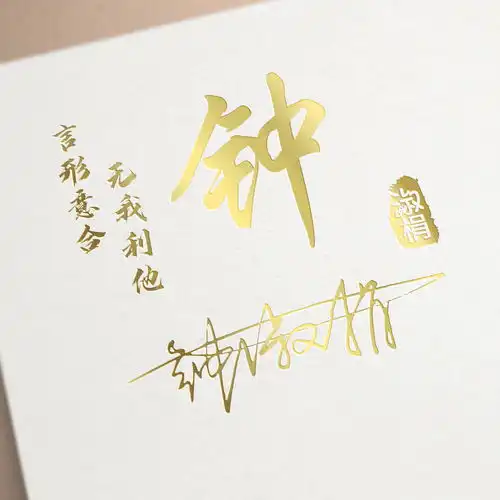 言形意合
无我利他
钟
淑梋